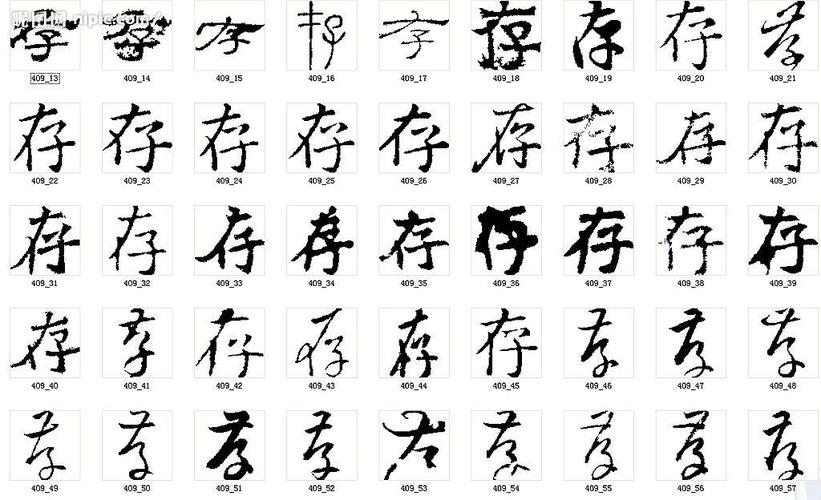 昵图网 nipic.com/
存 存 存 存 存 存 存 存 存
409_13 409_14 409_15 409_16 409_17 409_18 409_19 409_20 409_21
存 存 存 存 存 存 存 存 存
409_22 409_23 409_24 409_25 409_26 409_27 409_28 409_29 409_30
存 存 存 存 存 存 存 存 存
409_31 409_32 409_33 409_34 409_35 409_36 409_37 409_38 409_39
存 存 存 存 存 存 存 存 存
409_40 409_41 409_42 409_43 409_44 409_45 409_46 409_47 409_48
存 存 存 存 存 存 存 存 存
409_49 409_50 409_51 409_52 409_53 409_54 409_55 409_56 409_57